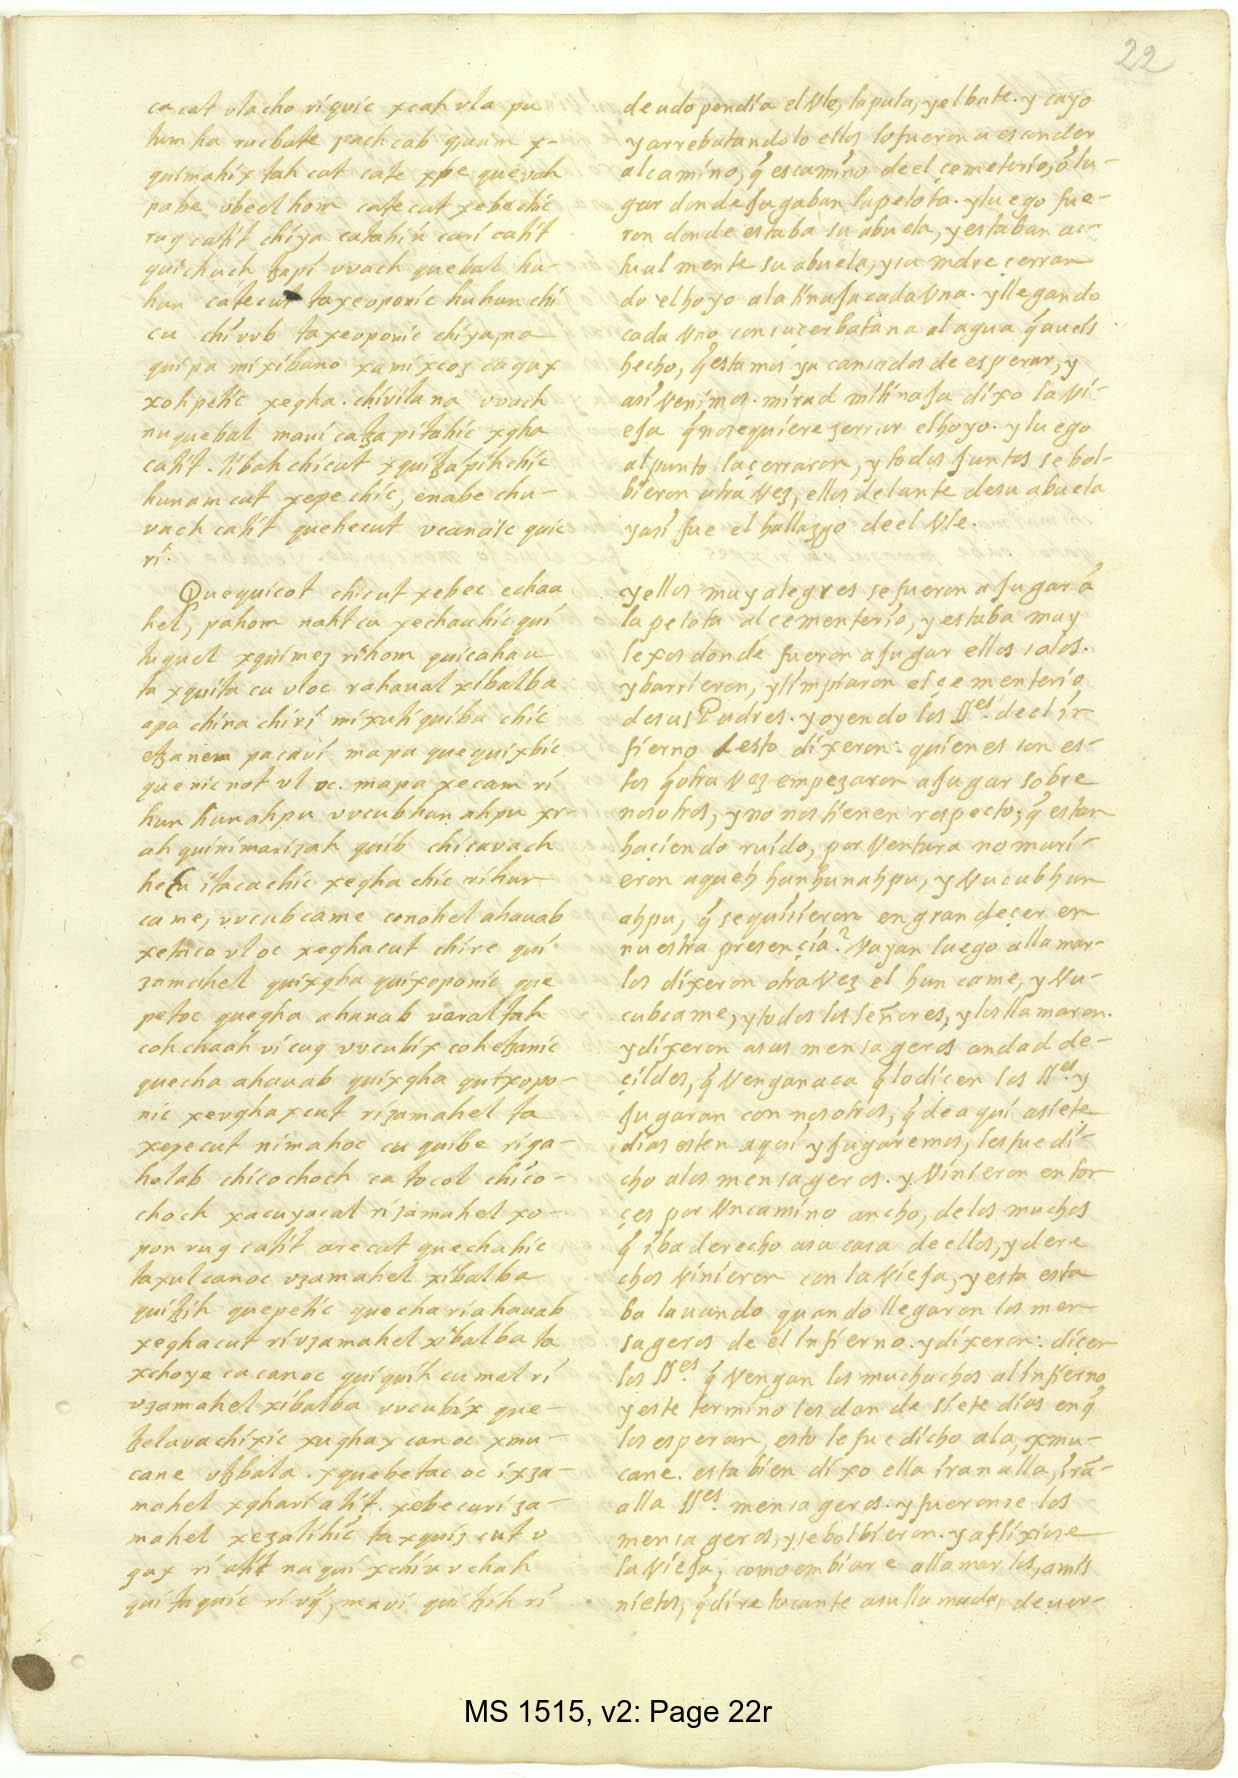 22
cacat vlacho ri quic xcah vla pu
tum ha rucbate pachcab quum x-
quimahix tah cut cate xbe quevah
pabe vbeel hom catecut xebechic
ruq catit chiya catahin curi catit
quichuch tzapi vvach quebal hu-
hun catecut taxeoponic huhun chi
cu chi vvb taxeoponic chiya, na
quipa mixibano xamixcoz caqax
xohpetic xegha. chivila na vvach
nuquebal mavi catzapitahic xgha
catit. libahchicut xquitzapihchic
hunam cut xepe chic, enabe chu-
vach catit quehecut vcanaic quic
ri.
Quequicot chicut xebec echaa
hel, pahom naht ca xechaahic qui
tuquel xquimez rihom quicahau
ta xquita cu vloc rahaual xibalba
apa china chiri mixutiquiba chic
etzanem pacavi mapa quequixbic
quenicnot vloc. mapa xecam ri
hun hunahpu vvcubhun ahpu xr-
ah quinimarizah quib chicavach
he cu itacachic xegha chic ri hun
came, vvcubcame conohel ahauab
xetaco vloc xeghacut chire qui
zamahel quixgha quixoponic que
petoc quegha ahauab varal tah
cohchaah vi cuq vvcubix cohetzanic
quecha ahauab quixgha quixopo-
nic xevghaxcut rizamahel ta
xepecut nimahoc cu quibe riqa-
holab chicochoch catocol chico-
choch xacuyacal rizamahel xo-
pon ruq catit arecut quechahic
taxul canoc vzamahel xibalba
quitzih quepetic quecha ri ahauab
xeghacut ri vzamahel xibalba ta
xchoye ca canoc quiquih cumal ri
vzamahel xibalba vvcubix que-
tzelavachixic xughax canoc xmu-
cane vtzbala. xquebetac oc ix za-
mahel xghari atit. xebecuri za-
mahel xezalihic taxquiz cut v
qux ri atit naqui xchinvchah
quitaquic ri vij, mavi quitzih ri
de ado pendia el Vle, la pala, y el bate. y cayo
y arrebatandolo ellos lo fueron a esconder
al camino, q̃ es camino de el çemeterio, ó lu-
gar donde jugaban la pelota. y luego fue-
ron donde estaba su abuela, y estaban ac-
tualmente su abuela, y su mdre çerran
do el hoyo a la tinaja cada Vna. y llegando
cada Vno con su cerbatana al agua q̃ aueis
hecho, q̃ estamos ya cansados de esperar, y
asi Venimos. mirad mi tinaja dixo la Vi-
eja q̃ no se quiere zerrar el hoyo. y luego
al punto la çerraron, y todos juntos se bol-
bieron otra Vez, ellos delante de su abuela
y asi fue el hallazgo de el Vle.
y ellos muy alegres se fueron a jugar á
la pelota al cementerio, y estaba muy
lexos donde fueron a jugar ellos solos.
y barrieron, y limpiaron el çementerio
de sus Padres. y oyendo los SSes. de el in
fierno esto dixeron: quienes son es-
tos q̃ otra Vez empezaron a jugar sobre
nosotros, y no nos tienen respecto, q̃ estan
haçiendo ruído, por Ventura no muri-
eron aqueh hunhunahpu, y Vucubhun
ahpu, q̃ se quisieron engrandeçer en
nuestra presençia? Vayan luego allamar-
los dixeron otra Vez el hun came, y Vu-
cubcame, y todos los señores, y los llamaron.
y dixeron a sus mensageros andad de-
çildes, q̃ Vengan aca q̃ lo dicen los SSes. y
jugaran con nosotros, q̃ de aqui a siete
dias esten aqui y jugaremos, les fue di-
cho a los mensageros. y Vinieron enton
çes por Vn camino ancho, de los muchos
q̃ iba derecho a su casa de ellos, y dere
chos Vinieron con la Vieja, y esta esta
ba lauando quando llegaron los men
sageros de el Infierno. y dixeron: diçen
los SSes. q̃ Vengan los muchachos al Infierno,
y este termino les dan de siete dias en q̃
los esperan, esto le fue dicho a la, xmu-
cane. esta bien dixo ella iran alla, irã-
alla SSes. mensageros. y fueronse los
mensageros, y se bolbieron. y aflixiose
la Vieja, como embiare allamarlos, a mis
nietos, q̃ dire tocante a su llamada, de uer-
MS 1515, v2: Page 22r